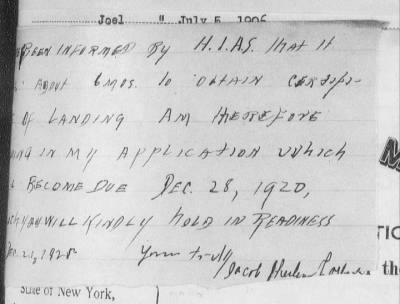 Joel " July 5, 1906
BEEN INFORMED BY H.I.A.S. THAT IT
ABOUT 6 MOS. TO OBTAIN CERTIFI-
OF LANDING AM THEREFORE
ING IN MY APPLICATION WHICH
BECOME DUE DEC. 28, 1920,
YOU WILL KINDLY HOLD IN READINESS
Yours truly
Jacob
State of New York,
the